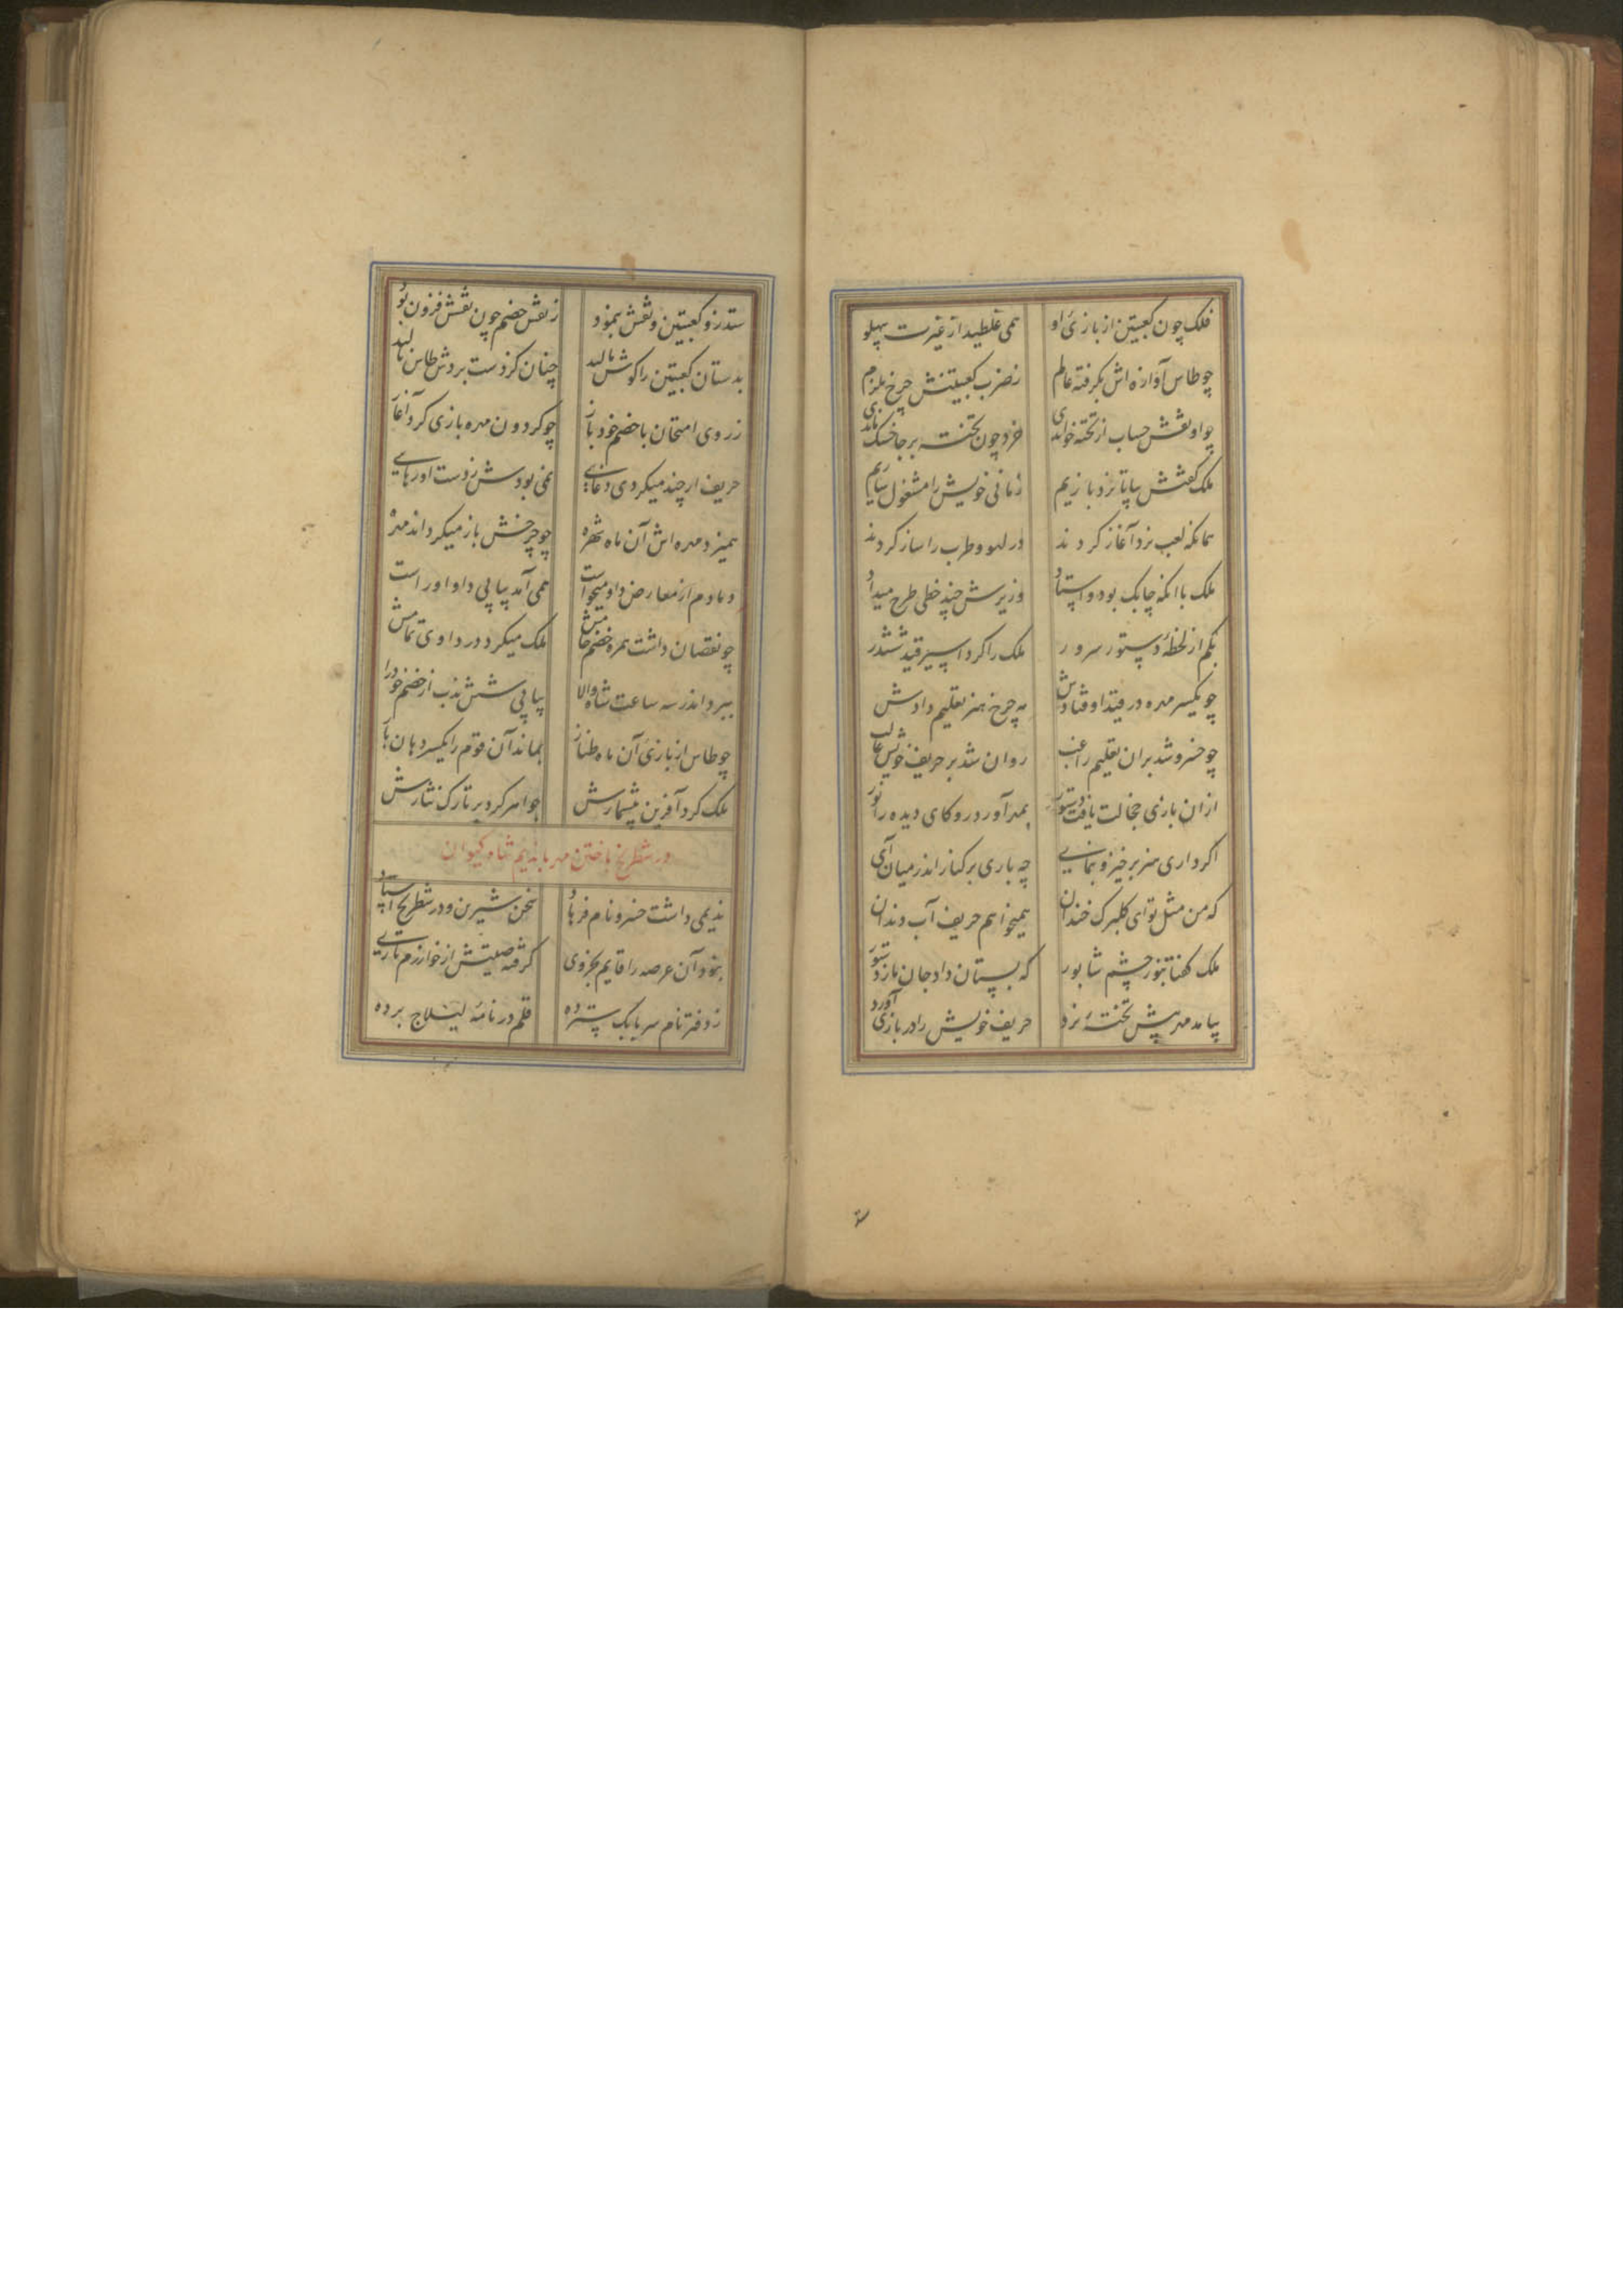 فلک چون کعبتین از بازی او همی غلطید از غیرت بپهلو
چو طاس آوازه اش بگرفته عالم ز ضرب کعبتینش چرخ ملزم
چو او نقش حساب از تخته خواندی خرد چون تخته بر جا خشک ماندی
ملک گفتش بیا تا نرد بازیم زمانی خویش را مشغول سازیم
همانگه لعب نرد آغاز کردند در لهو و طرب را ساز کردند
ملک با آنکه چابک بود و استاد وزیرش چند خطی طرح میداد
بکم از لحظهٔ دستور سرور ملک را کرد اسیر قید ششدر
چو یکسر مهره در قید اوفتادش مه چرخ هنر تعلیم دادش
چو خسرو شد بران تعلیم راغب روان شد بر حریف خویش غالب
ازان بازی خجالت یافت دستور بمهر آورد رو کای دیده را نور
اگر داری هنر برخیز و بنمای چه باری بر کنار اندر میان آی
که من مثل تو ای گلبرگ خندان همیخواهم حریف آب دندان
ملک گفتا بنور چشم شاپور که بستان داد جان ما ز دستور
بیامد مهر پیش تختهٔ نرد حریف خویش را در بازی آورد
ستد زو کعبتین و نقش بنمود ز نقش خصم چون نقش فزون بود
بدستان کعبتین را گوش مالید چنان کز دست بردش طاس نالید
ز روی امتحان با خصم خود باز چو گردون مهره بازی کرد آغاز
حریف ار چند میکردی دغایی نمی بودش ز دست او رهایی
همیزد مهره اش آن ماه شهره چو چرخش باز میگرداند مهره
دمادم از معارض داو میخواست همی آمد پیاپی داو او راست
چو نقصان داشت مهره خصم خامش ملک میکرد در داوی تمامش
ببرد اندر سه ساعت شاه والا پیاپی شش ندب از خصم خود را
چو طاس از بازی آن ماه طناز بماند آن قوم را یکسر دهان باز
ملک کرد آفرین بیشمارش جواهر کرد بر تارک نثارش
در شطرنج باختن مهر با ندیم شاه کیوان
ندیمی داشت خسرو نام فرهاد سخن شیرین و در شطرنج استاد
بخود آن عرصه را قایم بجزوی گرفته صیتش از خوارزم تا ری
ز دفتر نام سر بابک سترده قلم در نامهٔ لیلاج برده